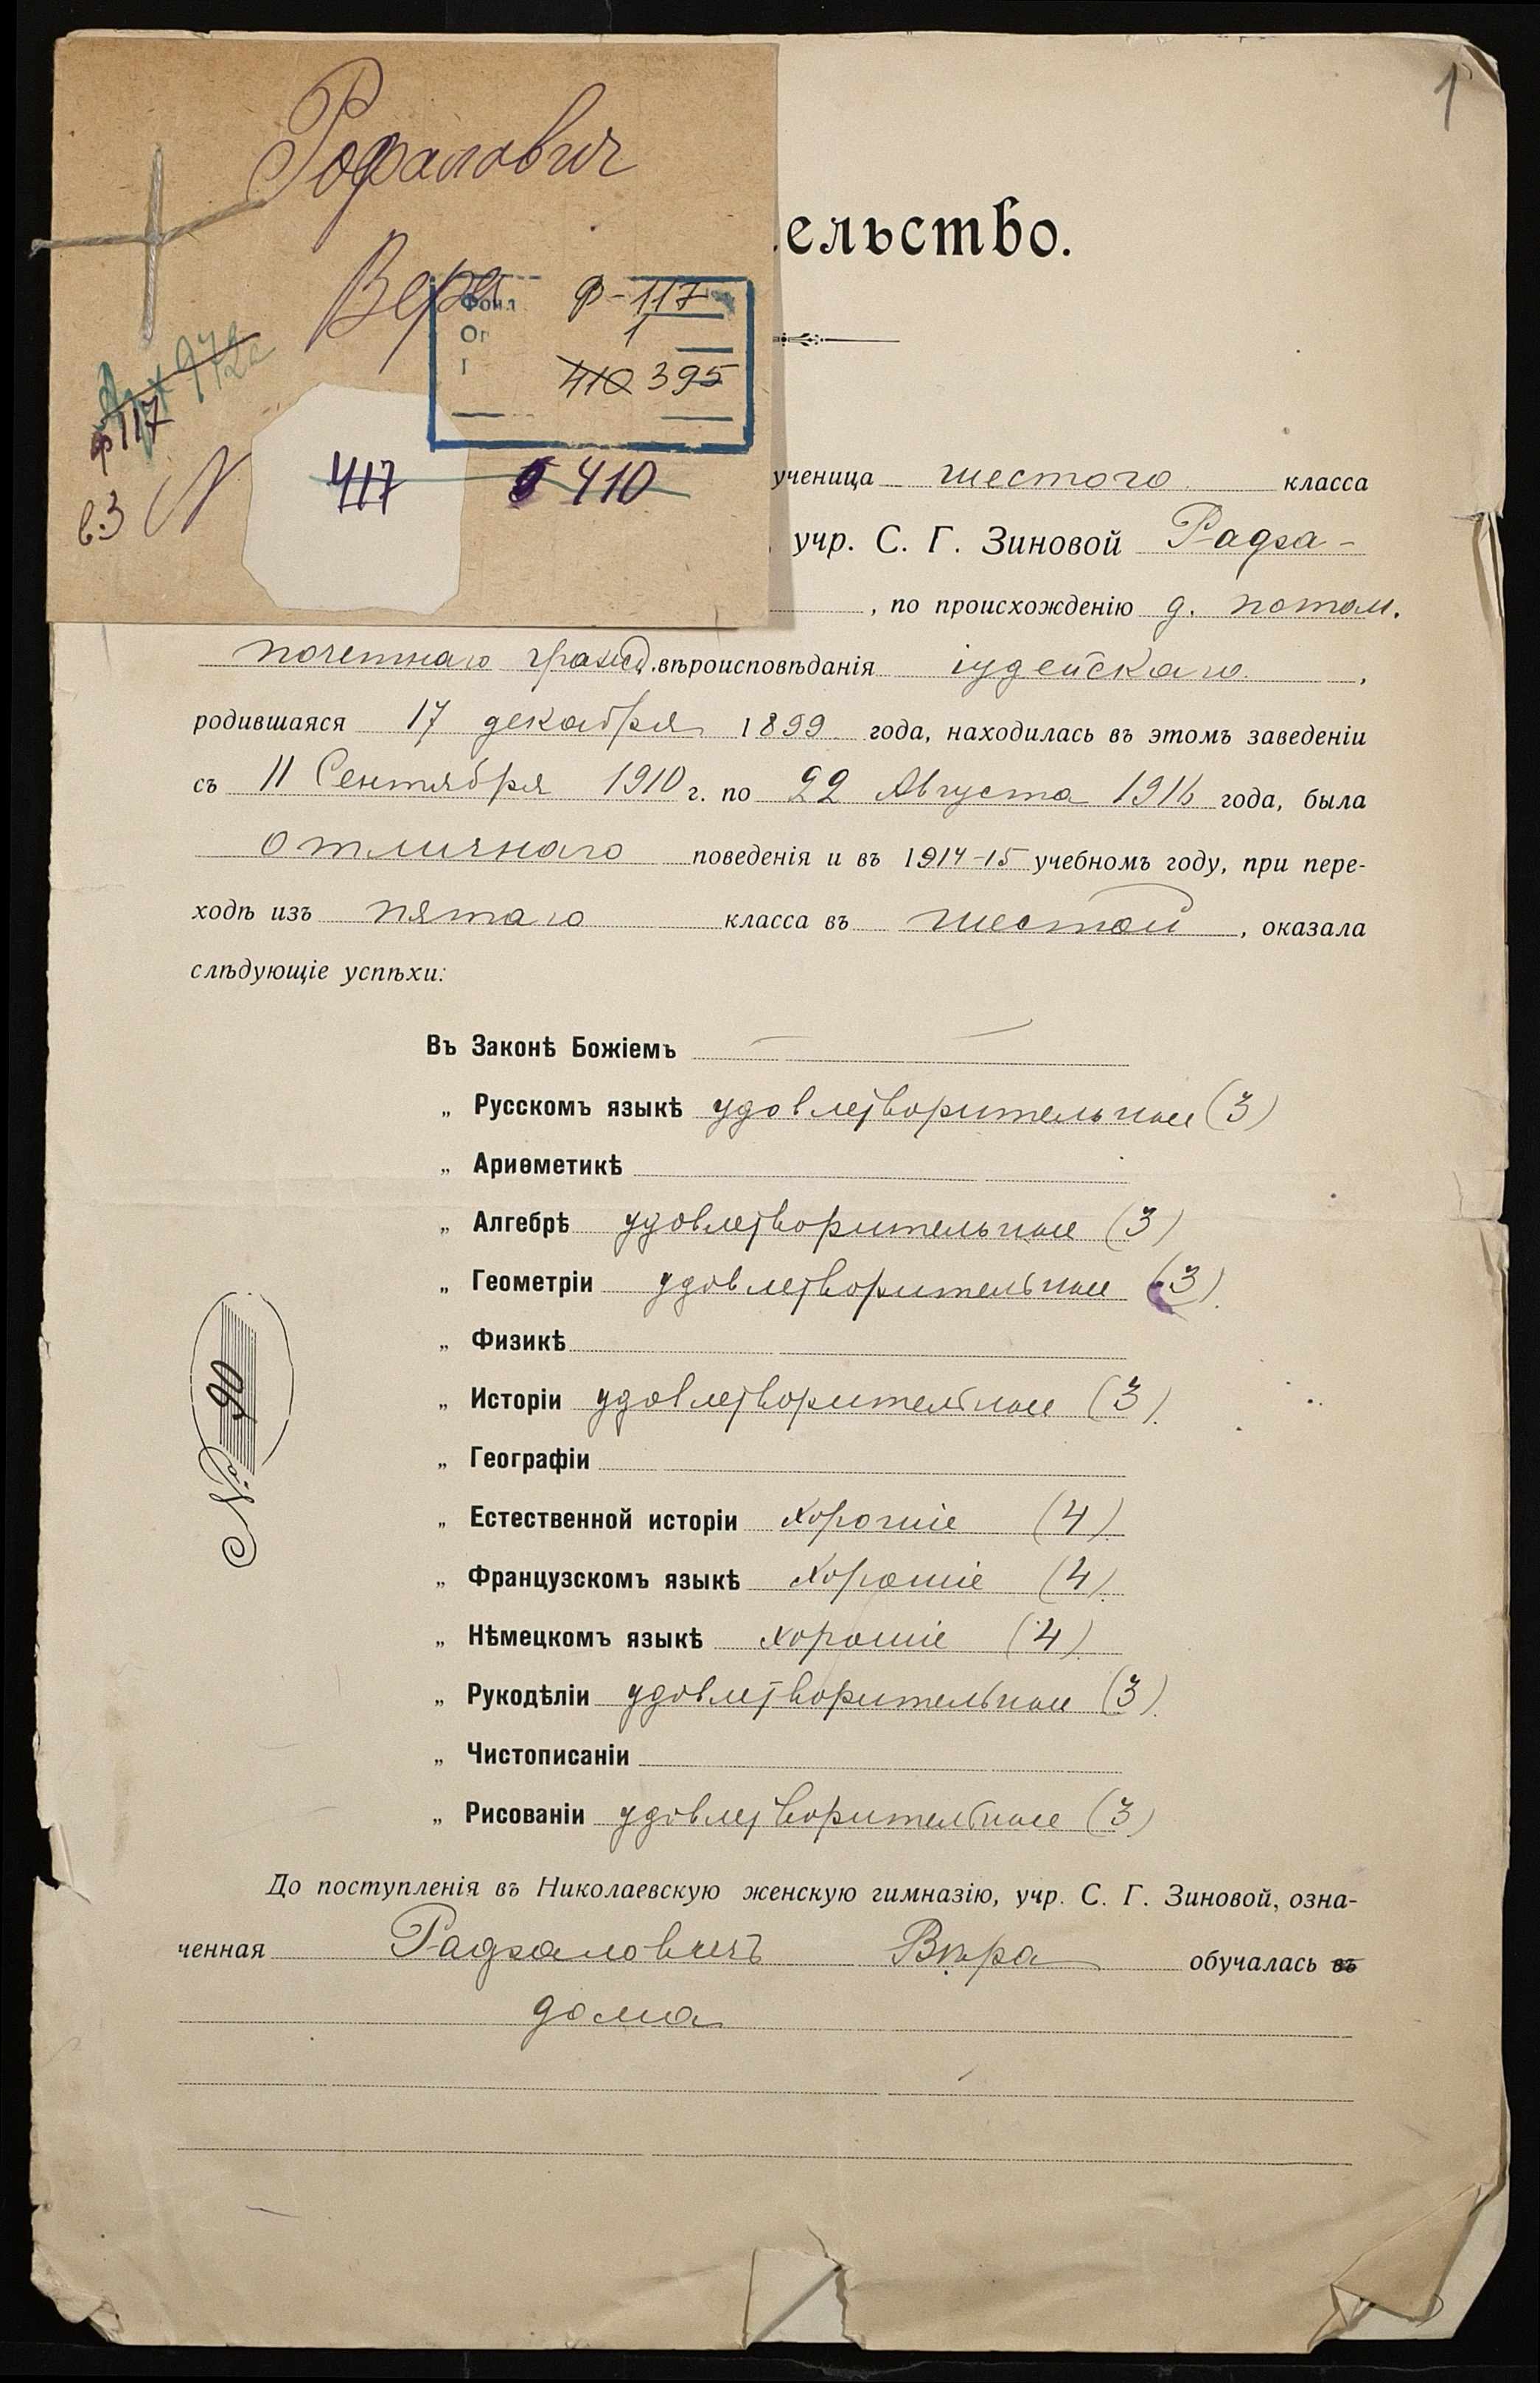 1
Рафалович
Вера
Фонд Ф-117
Оп 1
410 395
Ф 117
в.3 N 417 410
ельство.
ученица шестого класса
учр. С. Г. Зиновой Рафа-
, по происхожденію д. потом.
почетнаго гражд. вѣроисповѣданія іудейскаго,
родившаяся 17 декабря 1899 года, находилась въ этомъ заведеніи
съ 11 Сентября 1910 г. по 22 Августа 1916 года, была
отличнаго поведенія и въ 1914-15 учебномъ году, при пере-
ходѣ изъ пятаго класса въ шестой, оказала
слѣдующіе успѣхи:
Въ Законѣ Божіемъ —
„ Русскомъ языкѣ удовлетворительные (3)
„ Ариѳметикѣ
„ Алгебрѣ удовлетворительные (3)
„ Геометріи удовлетворительные (3)
„ Физикѣ
„ Исторіи удовлетворительные (3)
„ Географіи
„ Естественной исторіи хорошіе (4)
„ Французскомъ языкѣ хорошіе (4)
„ Нѣмецкомъ языкѣ хорошіе (4)
„ Рукодѣліи удовлетворительные (3)
„ Чистописаніи
„ Рисованіи удовлетворительные (3)
№ 90
До поступленія въ Николаевскую женскую гимназію, учр. С. Г. Зиновой, озна-
ченная Рафаловичъ Вѣра обучалась въ
дома